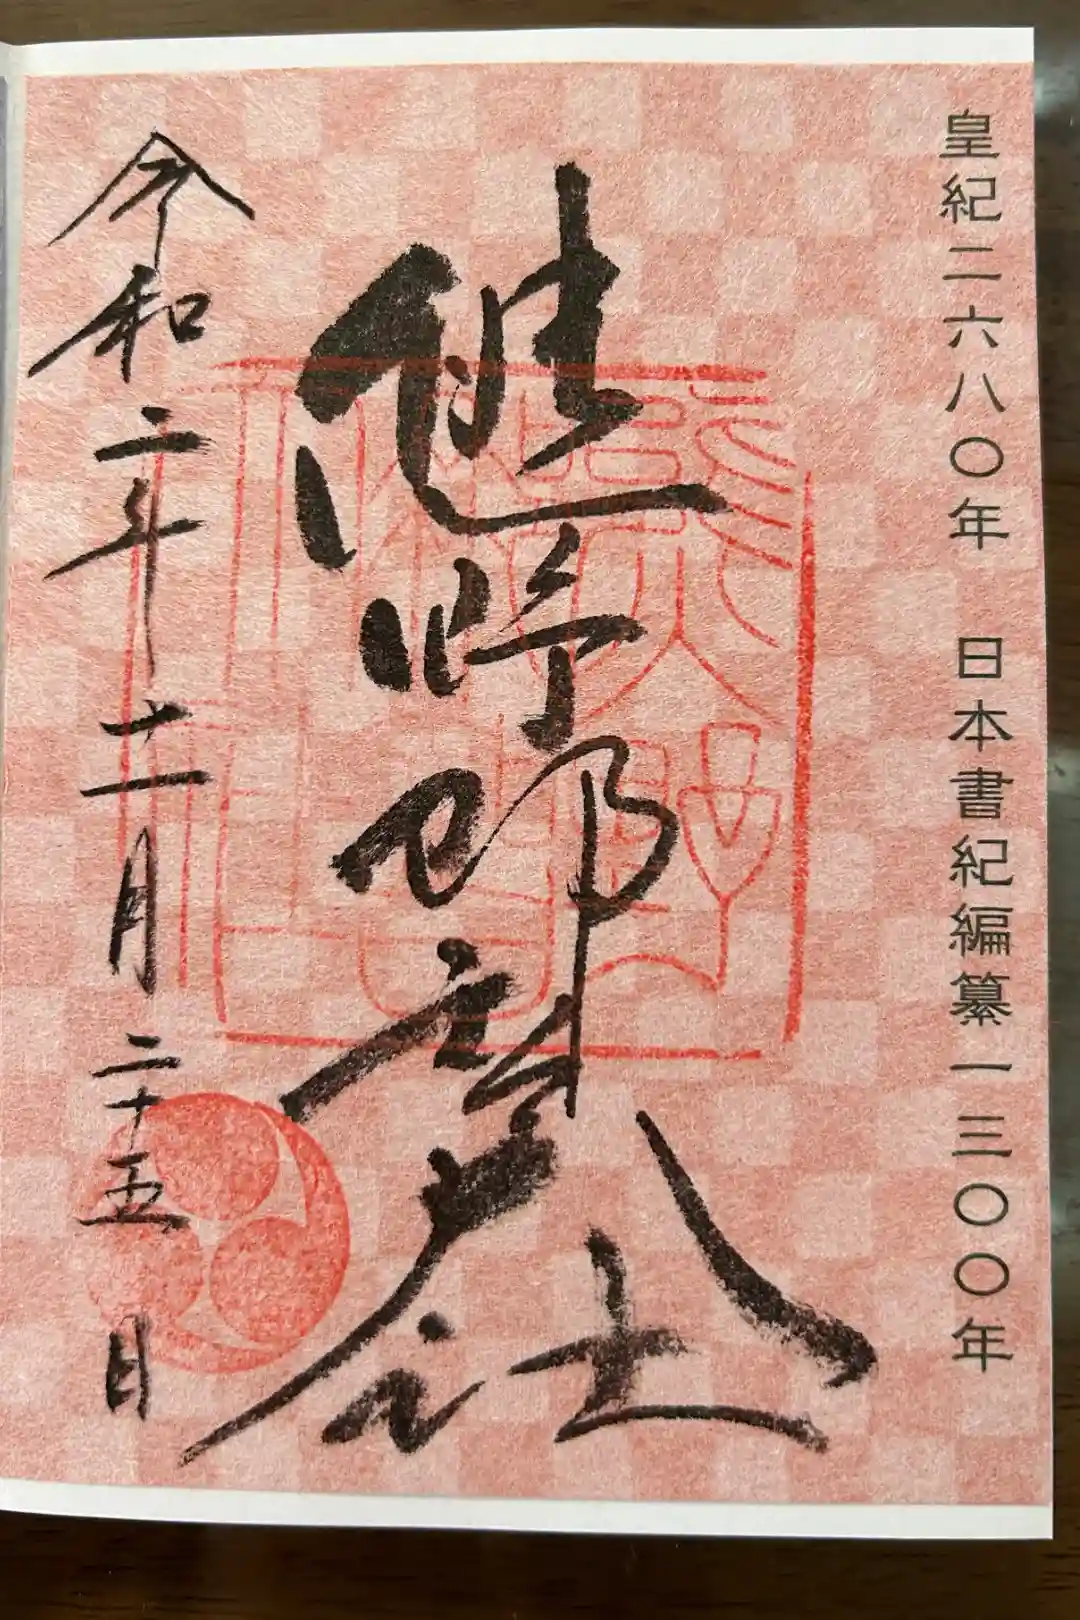 皇紀二六八〇年　日本書紀編纂一三〇〇年
熊野那智大社
令和二年十一月二十五日